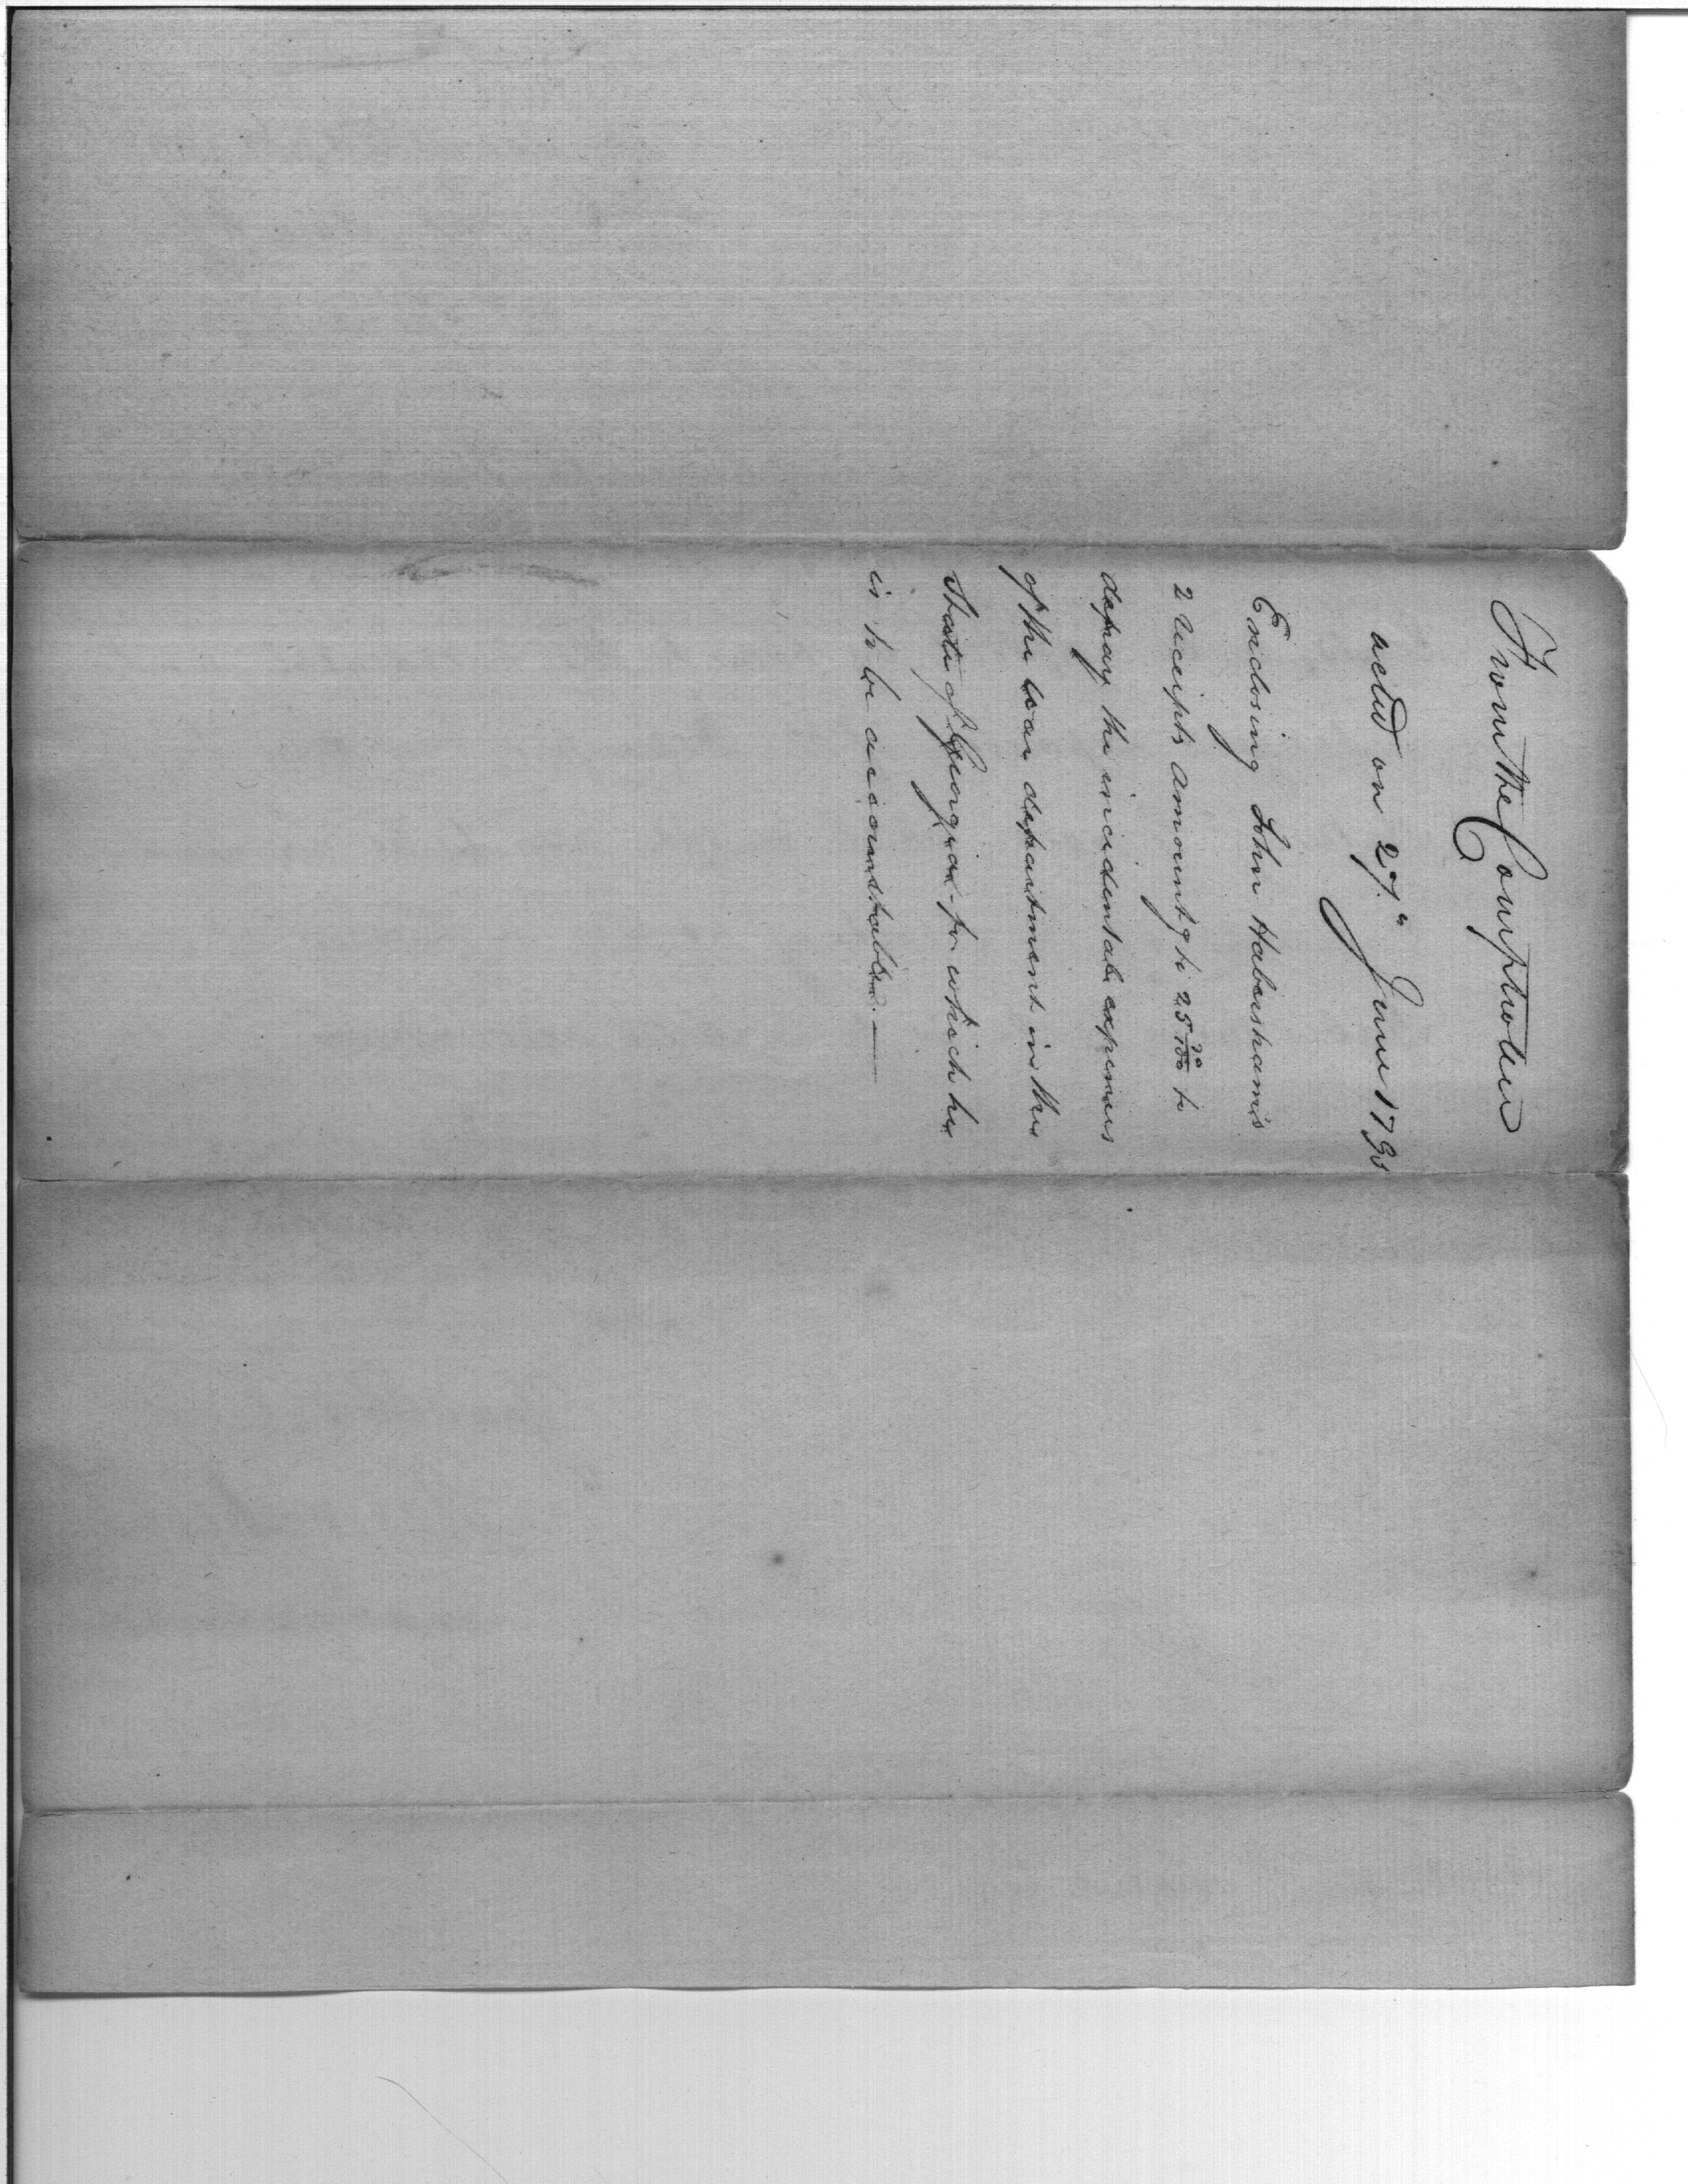 From the Comptroller
acted on 27th June 1793
Enclosing John Habershams
2 receipts amountg to 25 30/100 to
defray the incidental expenses
of the war department in the
State of Georgia - for which he
is to be accountable. —